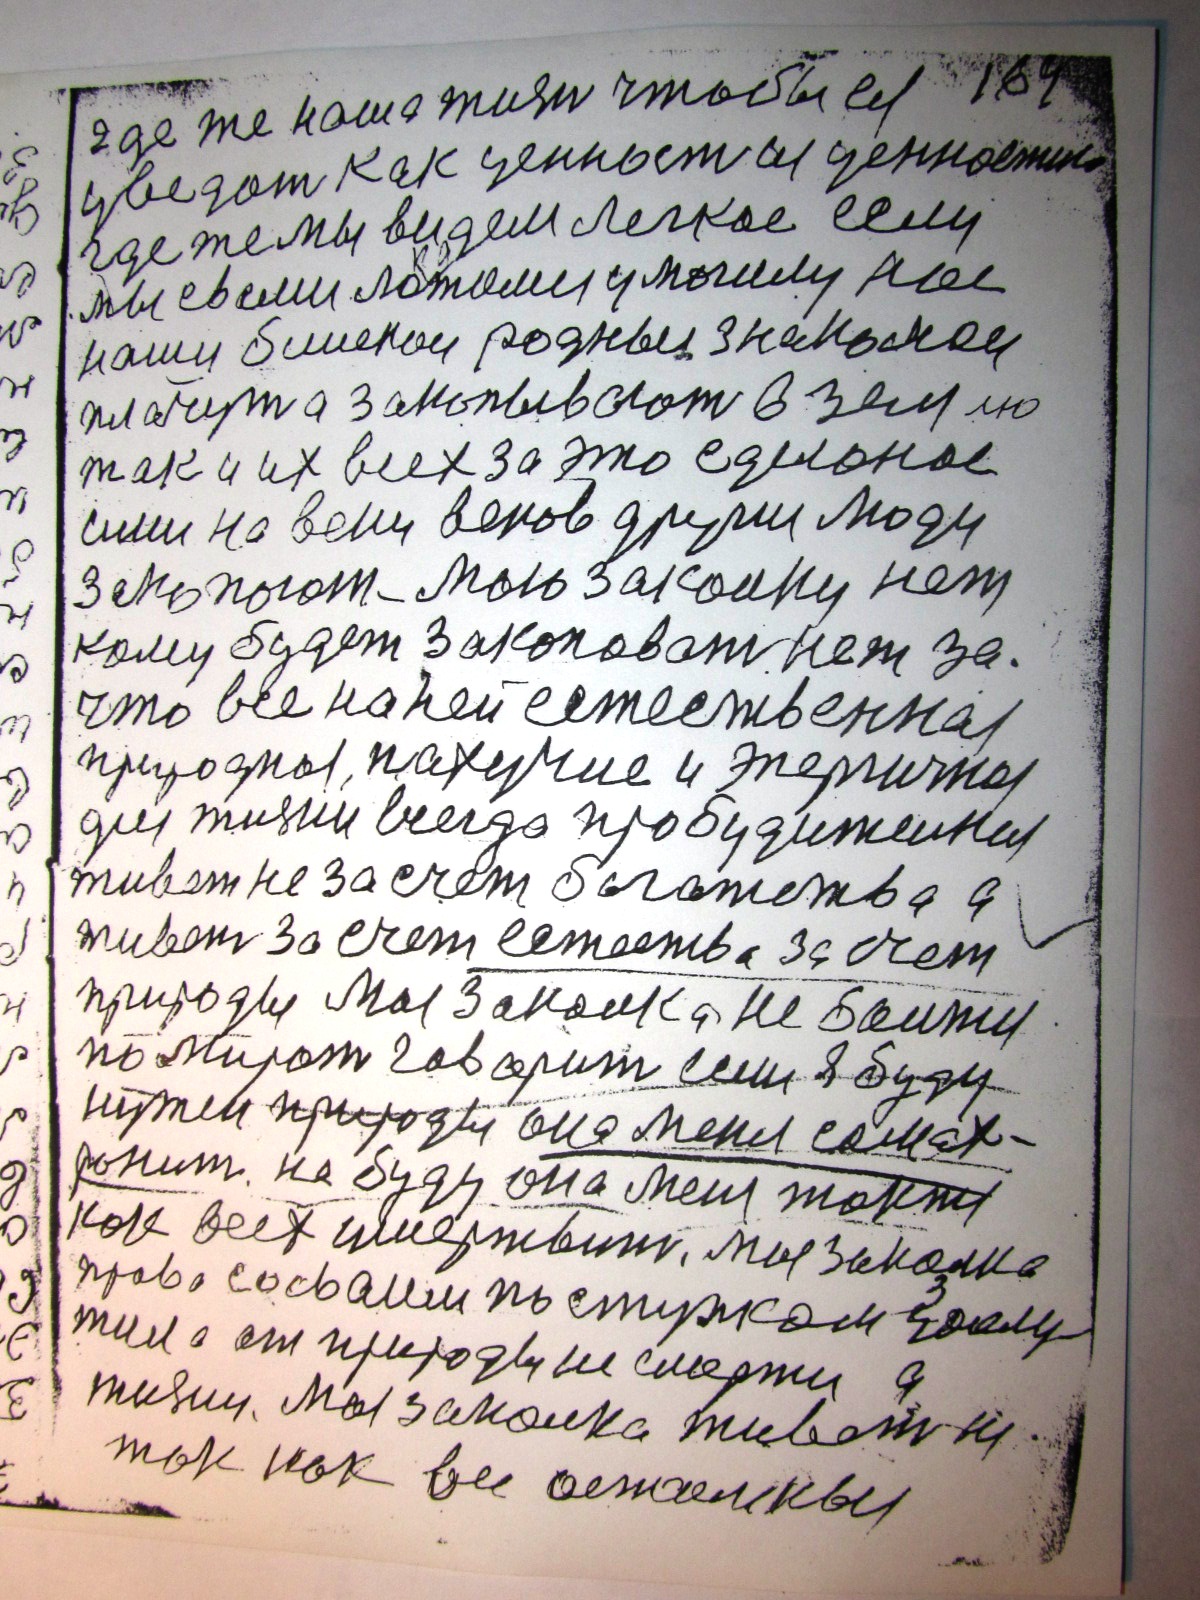 164
где же наша жизн чтобы ея
уведат как ценност ия ценностию
где же мы видем легкое если
мы своими ложами умочилу нас
наши близкои родныи знакомои
плачут а закопывают в землю
так и их всех за это сделоное
ими на веки веков другии люди
закопают – мою закалку нет
кому будет закоповат нет за.
что все на ней естественная
природныя, пахучие и энергичныя
для жизни всегда пробудителныя
живет не за счет богатетва а
живет за счет естества за счет
природы моя закалка не боитя
помират говорит если я буду
нужен природы она меня сохах-
ронит. на буду она меня также
как всех умертвит. моя закалка
права со сваим поступком
жила от природы не смерти а
жизни. моя закалка живет ни
так как вси осталныи